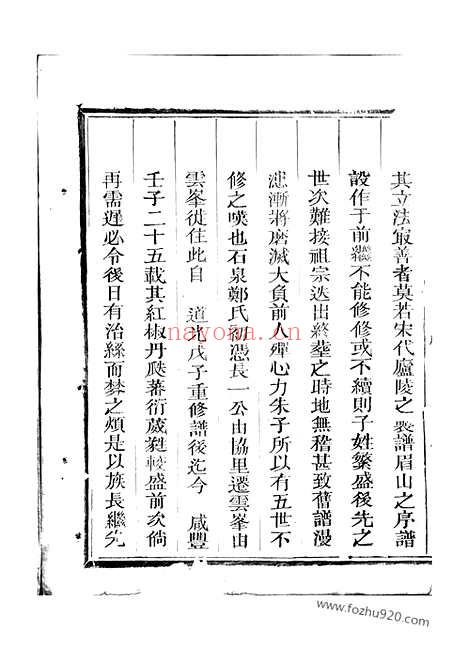 其立法最善者莫若宋代廬陵之 譜眉山之序譜
設作于前繼不能修修或不續則子姓繁盛後先之
世次難接祖宗迭出終塟之時地無稽甚致舊譜漫
漶漸將磨滅大負前人殫心力朱子所以有五世不
修之嘆也石泉鄭氏初憑長一公由協里遷雲峯由
雲峯徙住此自 道光戊子重修譜後迄今 咸豐
壬子二十五載其紅椒丹 蕃衍葳蕤較盛前次倘
再需遲必令後日有治絲而棼之煩是以族長繼先
nayona.cn
www.fozhu920.com